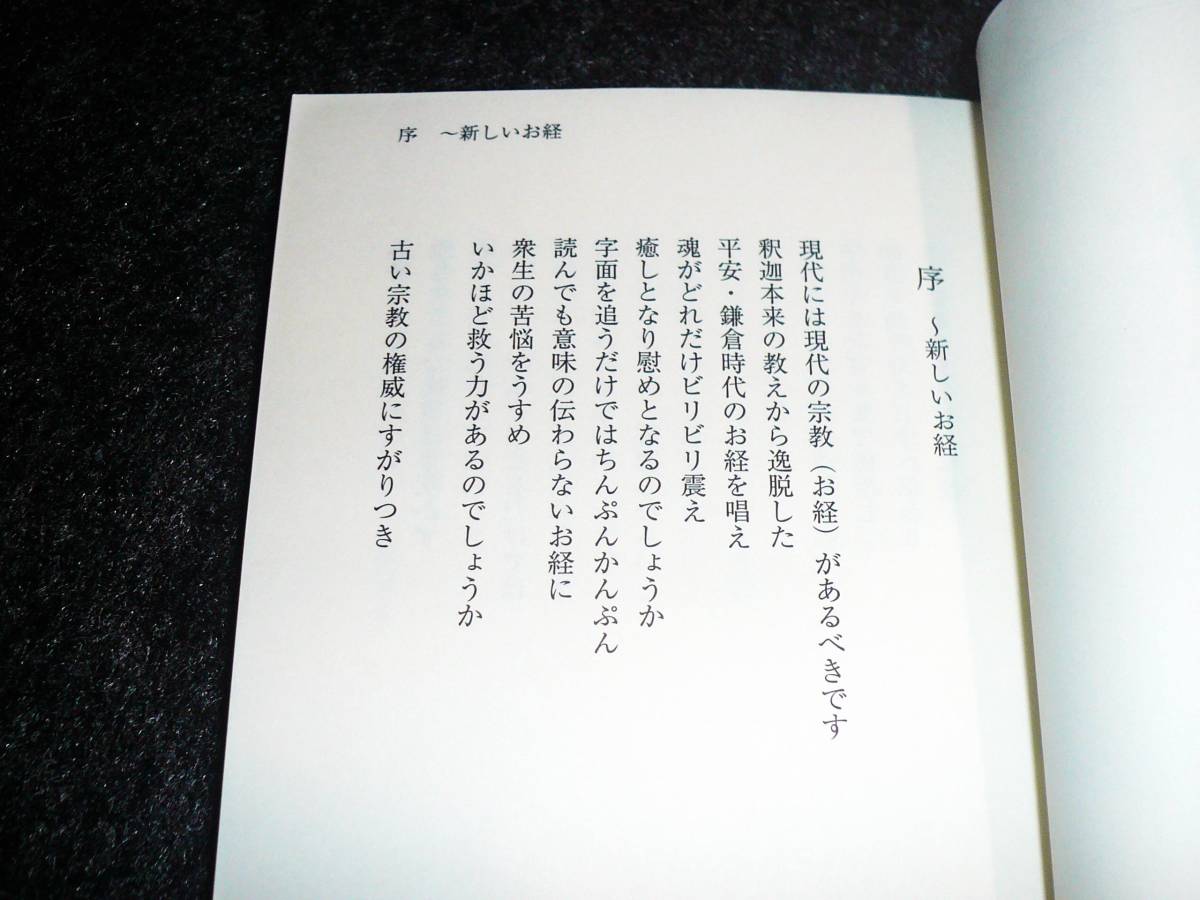 序　〜新しいお経
序　〜新しいお経
現代には現代の宗教（お経）があるべきです
釈迦本来の教えから逸脱した
平安・鎌倉時代のお経を唱え
魂がどれだけビリビリ震え
癒しとなり慰めとなるのでしょうか
字面を追うだけではちんぷんかんぷん
読んでも意味の伝わらないお経に
衆生の苦悩をうすめ
いかほど救う力があるのでしょうか
古い宗教の権威にすがりつき